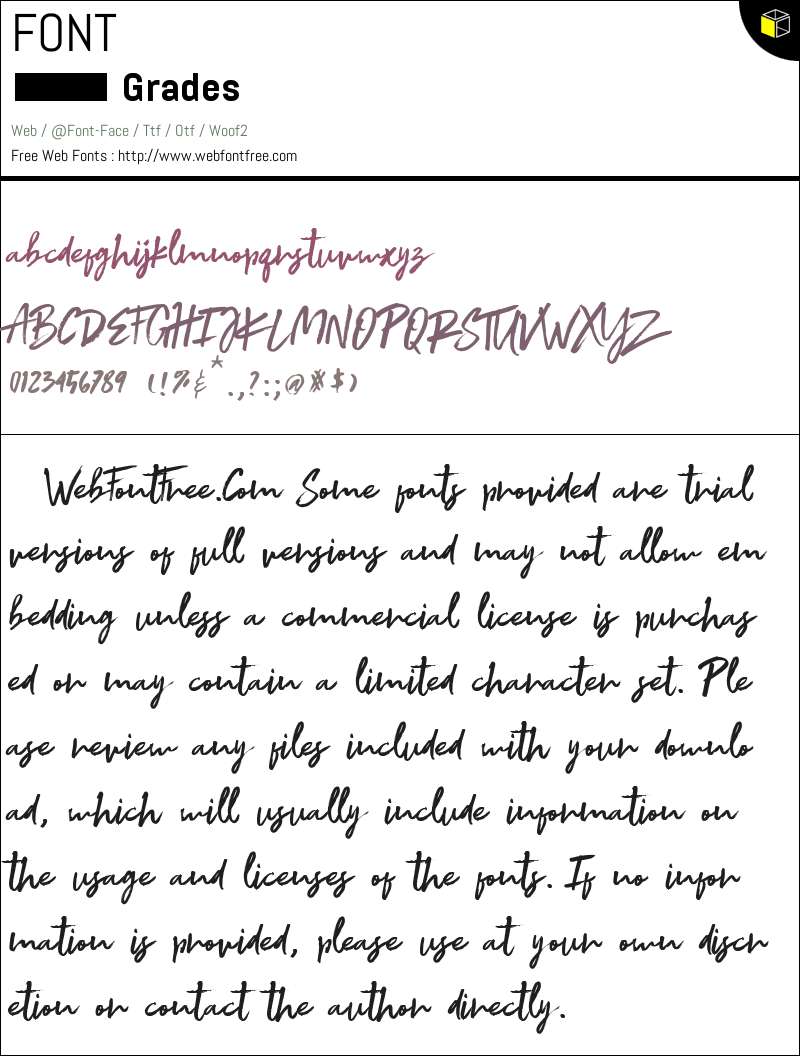 FONT
Grades
Web / @Font-Face / Ttf / Otf / Woof2
Free Web Fonts : http://www.webfontfree.com
abcdefghijklmnopqrstuvwxyz
ABCDEFGHIJKLMNOPQRSTUVWXYZ
0123456789 (!%&*.,?:;@#$)
WebFontFree.Com Some fonts provided are trial
versions of full versions and may not allow em
bedding unless a commercial license is purchas
ed or may contain a limited character set. Ple
ase review any files included with your downlo
ad, which will usually include information on
the usage and licenses of the fonts. If no infor
mation is provided, please use at your own discr
etion or contact the author directly.